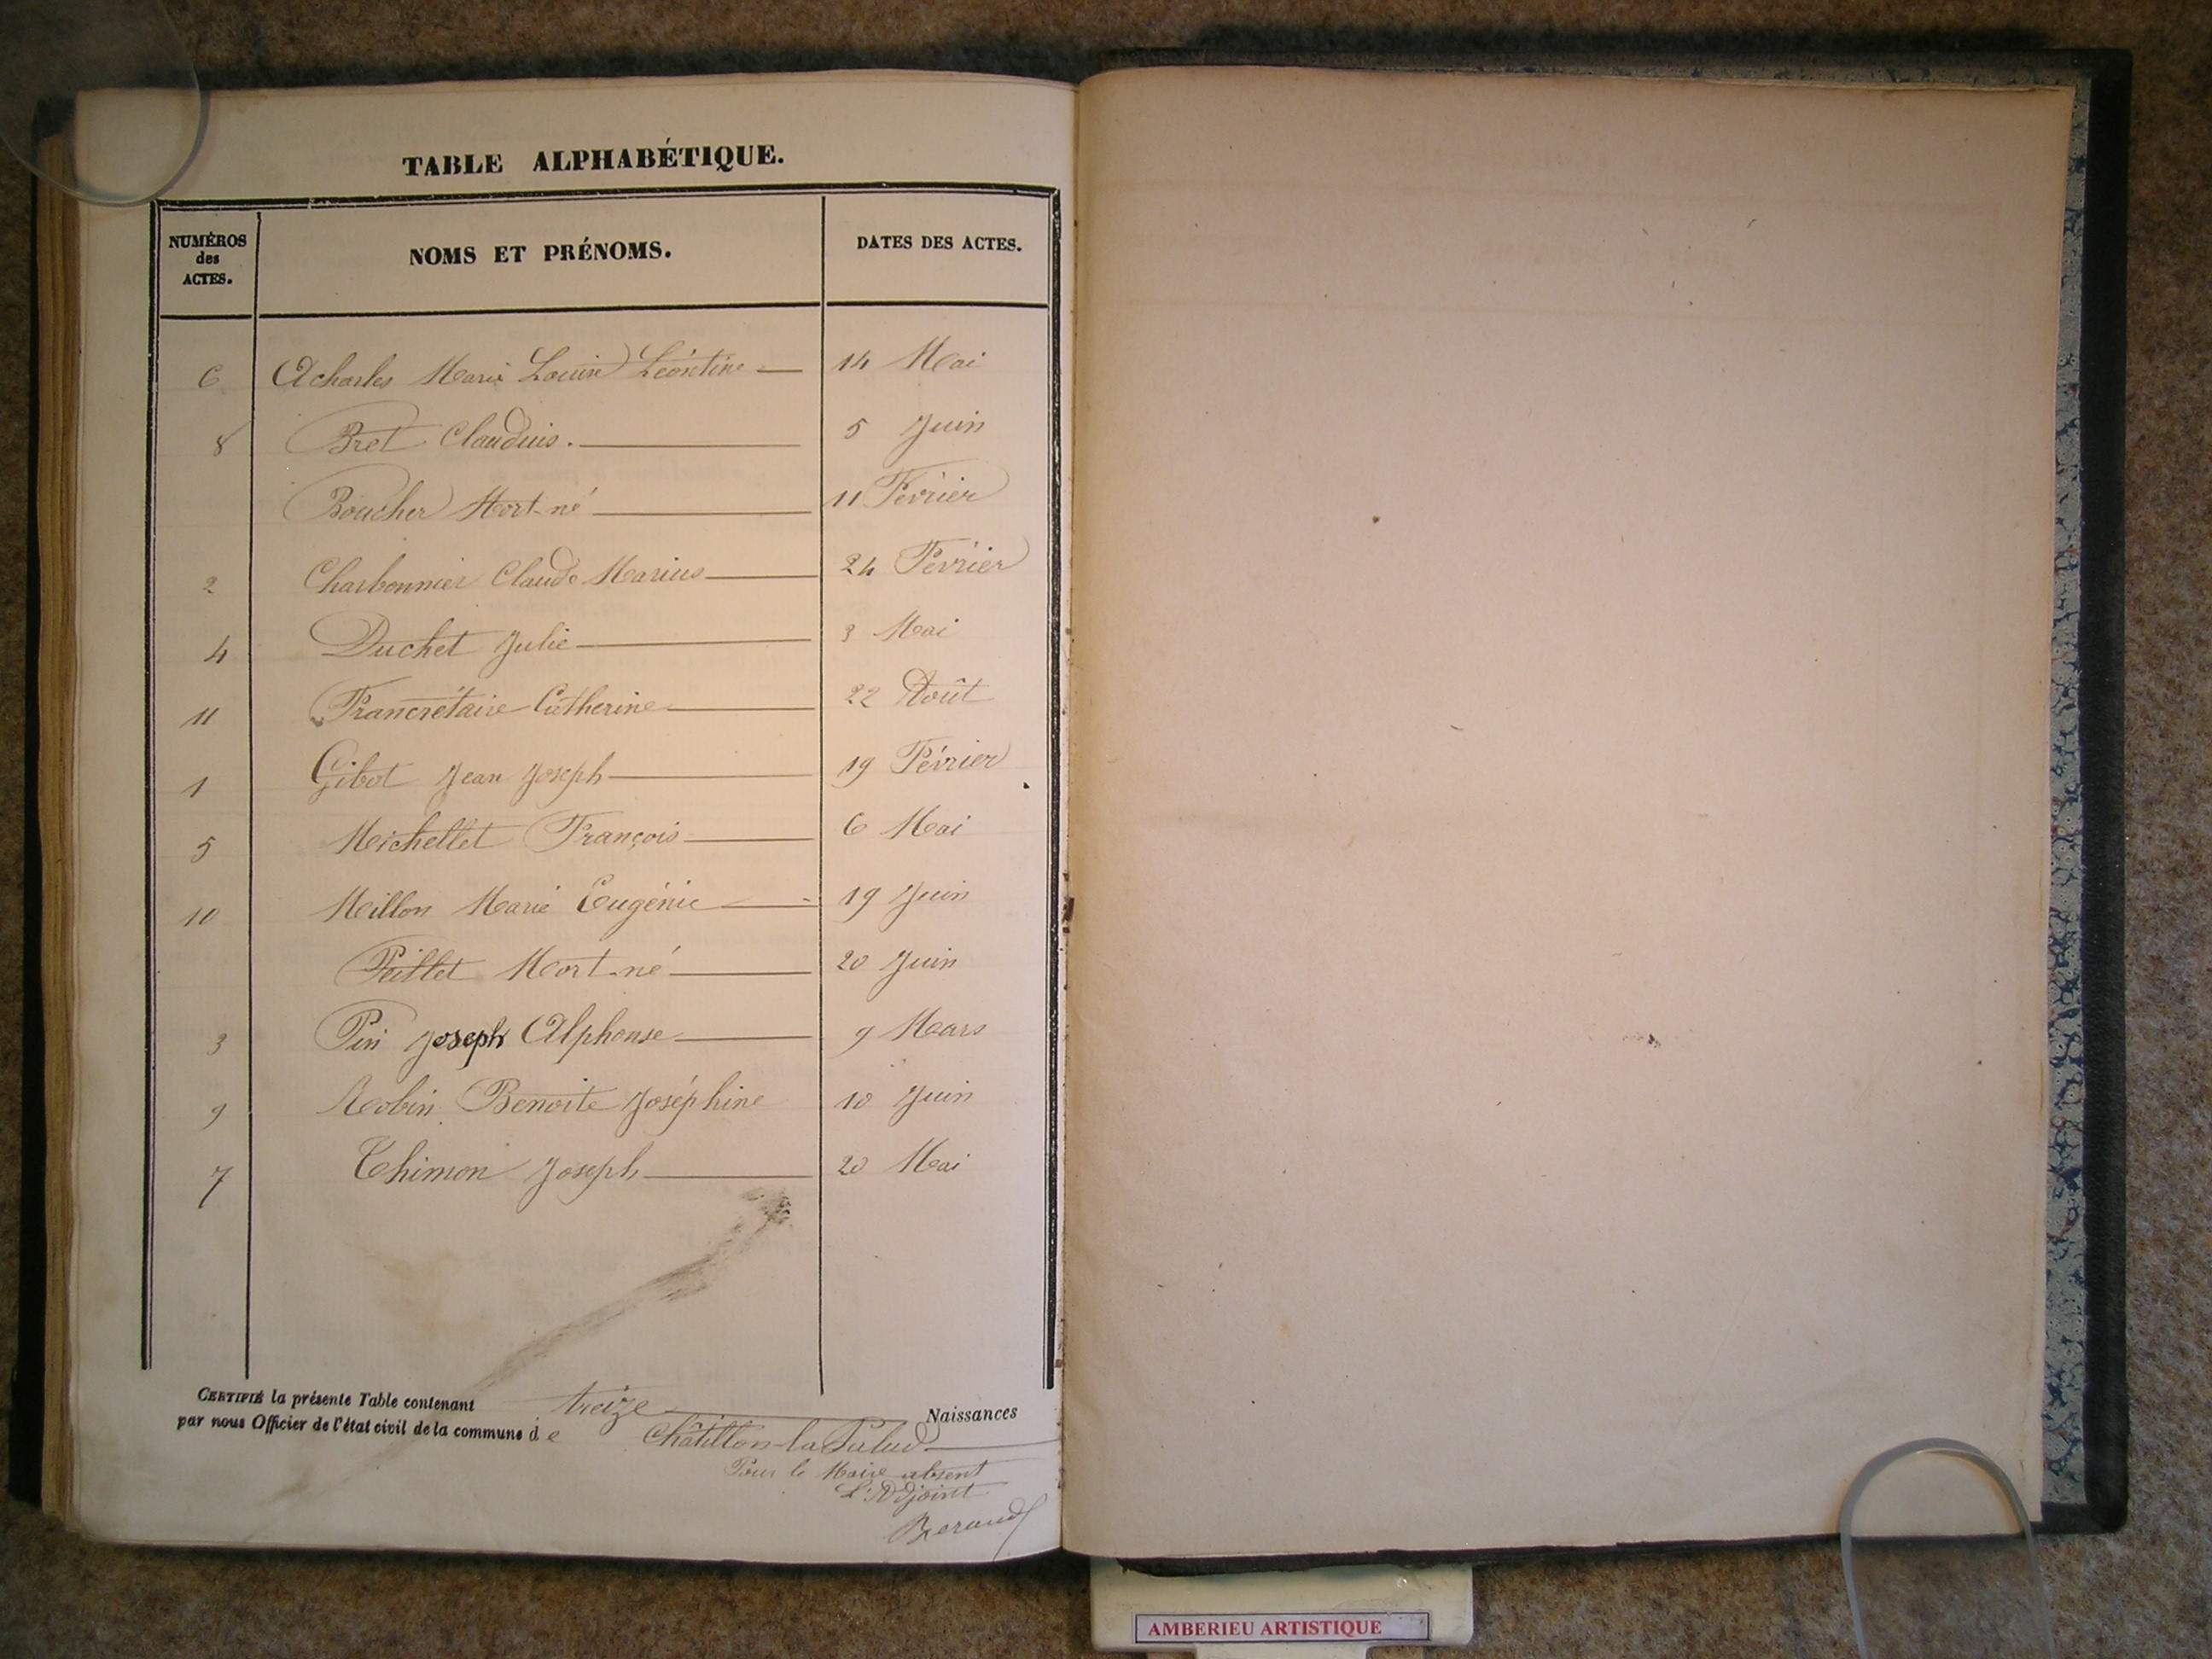 TABLE ALPHABÉTIQUE.
NUMÉROS des ACTES. NOMS ET PRÉNOMS. DATES DES ACTES.
6 Acharles Marie Louise Léontine 14 Mai
8 Bret Claudius. 5 Juin
Boucher Mort-né 11 Février
2 Charbonnier Claude Marius 24 Février
4 Duchet Julie 3 Mai
11 Francrétaire Catherine 22 Août
1 Gibot Jean Joseph 19 Février
5 Michellet François 6 Mai
10 Millon Marie Eugénie 19 Juin
Mort-né 20 Juin
3 Pin Joseph Alphonse 9 Mars
9 Robin Benoite Joséphine 10 Juin
7 Thimon Joseph 20 Mai
CERTIFIÉ la présente Table contenant treize Naissances
par nous Officier de l'état civil de la commune de Châtillon-la-Palud
Pour le Maire absent
L'Adjoint
AMBERIEU ARTISTIQUE